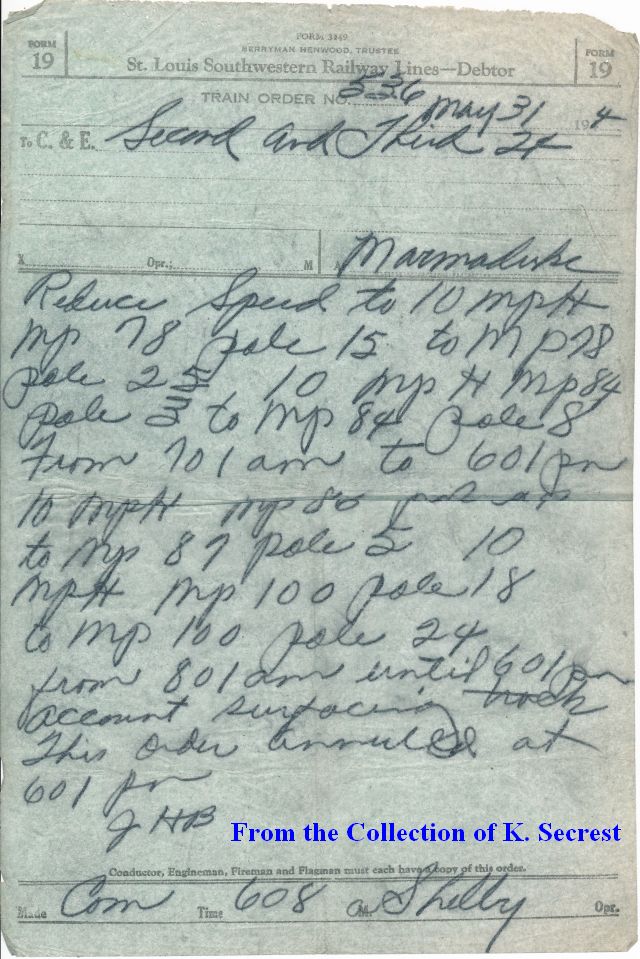 FORM 3849
FORM 19
BERRYMAN HENWOOD, TRUSTEE
St. Louis Southwestern Railway Lines—Debtor
FORM 19
TRAIN ORDER NO. 536 May 31 194
To C. & E. Second and Third 24
X Opr.; M Marmaduke
Reduce Speed to 10 mpH
mp 78 pole 15 to mp 78
pole 2 10 mpH mp 84
pole to mp 84 pole 8
From 701 am to 601 pm
10 mpH mp 86
to mp 87 pole 5 10
mpH mp 100 pole 18
to mp 100 pole 24
from 801 am until 601 pm
account surfacing track
This order annulled at
601 pm
JHB
From the Collection of K. Secrest
Conductor, Engineman, Fireman and Flagman must each have a copy of this order.
Made Com Time 608 M. Shelby Opr.